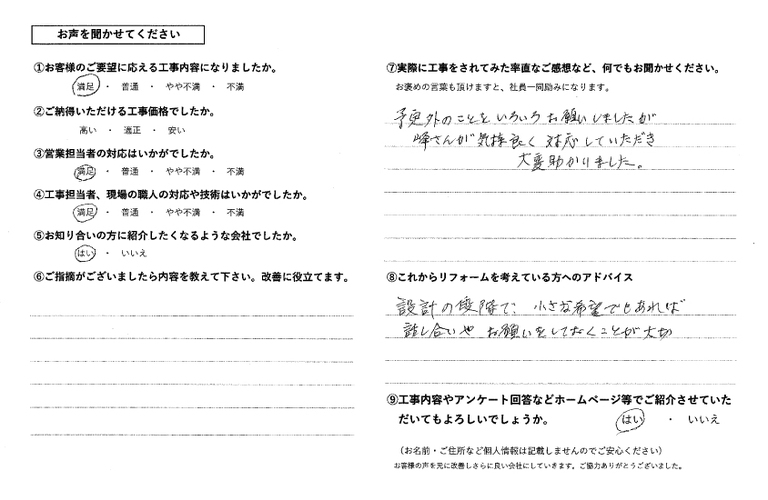 お声を聞かせてください
①お客様のご要望に応える工事内容になりましたか。
満足 ・ 普通 ・ やや不満 ・ 不満
②ご納得いただける工事価格でしたか。
高い ・ 適正 ・ 安い
③営業担当者の対応はいかがでしたか。
満足 ・ 普通 ・ やや不満 ・ 不満
④工事担当者、現場の職人の対応や技術はいかがでしたか。
満足 ・ 普通 ・ やや不満 ・ 不満
⑤お知り合いの方に紹介したくなるような会社でしたか。
はい ・ いいえ
⑥ご指摘がございましたら内容を教えて下さい。改善に役立てます。
⑦実際に工事をされてみた率直なご感想など、何でもお聞かせください。
お褒めの言葉も頂けますと、社員一同励みになります。
外のことをいろいろお願いしましたが
峰さんが気持良く対応していただき
大変助かりました。
⑧これからリフォームを考えている方へのアドバイス
設計の段階で、小さな希望でもあれば
話し合いや お願いをしておくことが大切
⑨工事内容やアンケート回答などホームページ等でご紹介させていた
だいてもよろしいでしょうか。 はい ・ いいえ
（お名前・ご住所など個人情報は記載しませんのでご安心ください）
お客様の声を元に改善しさらに良い会社にしていきます。ご協力ありがとうございました。